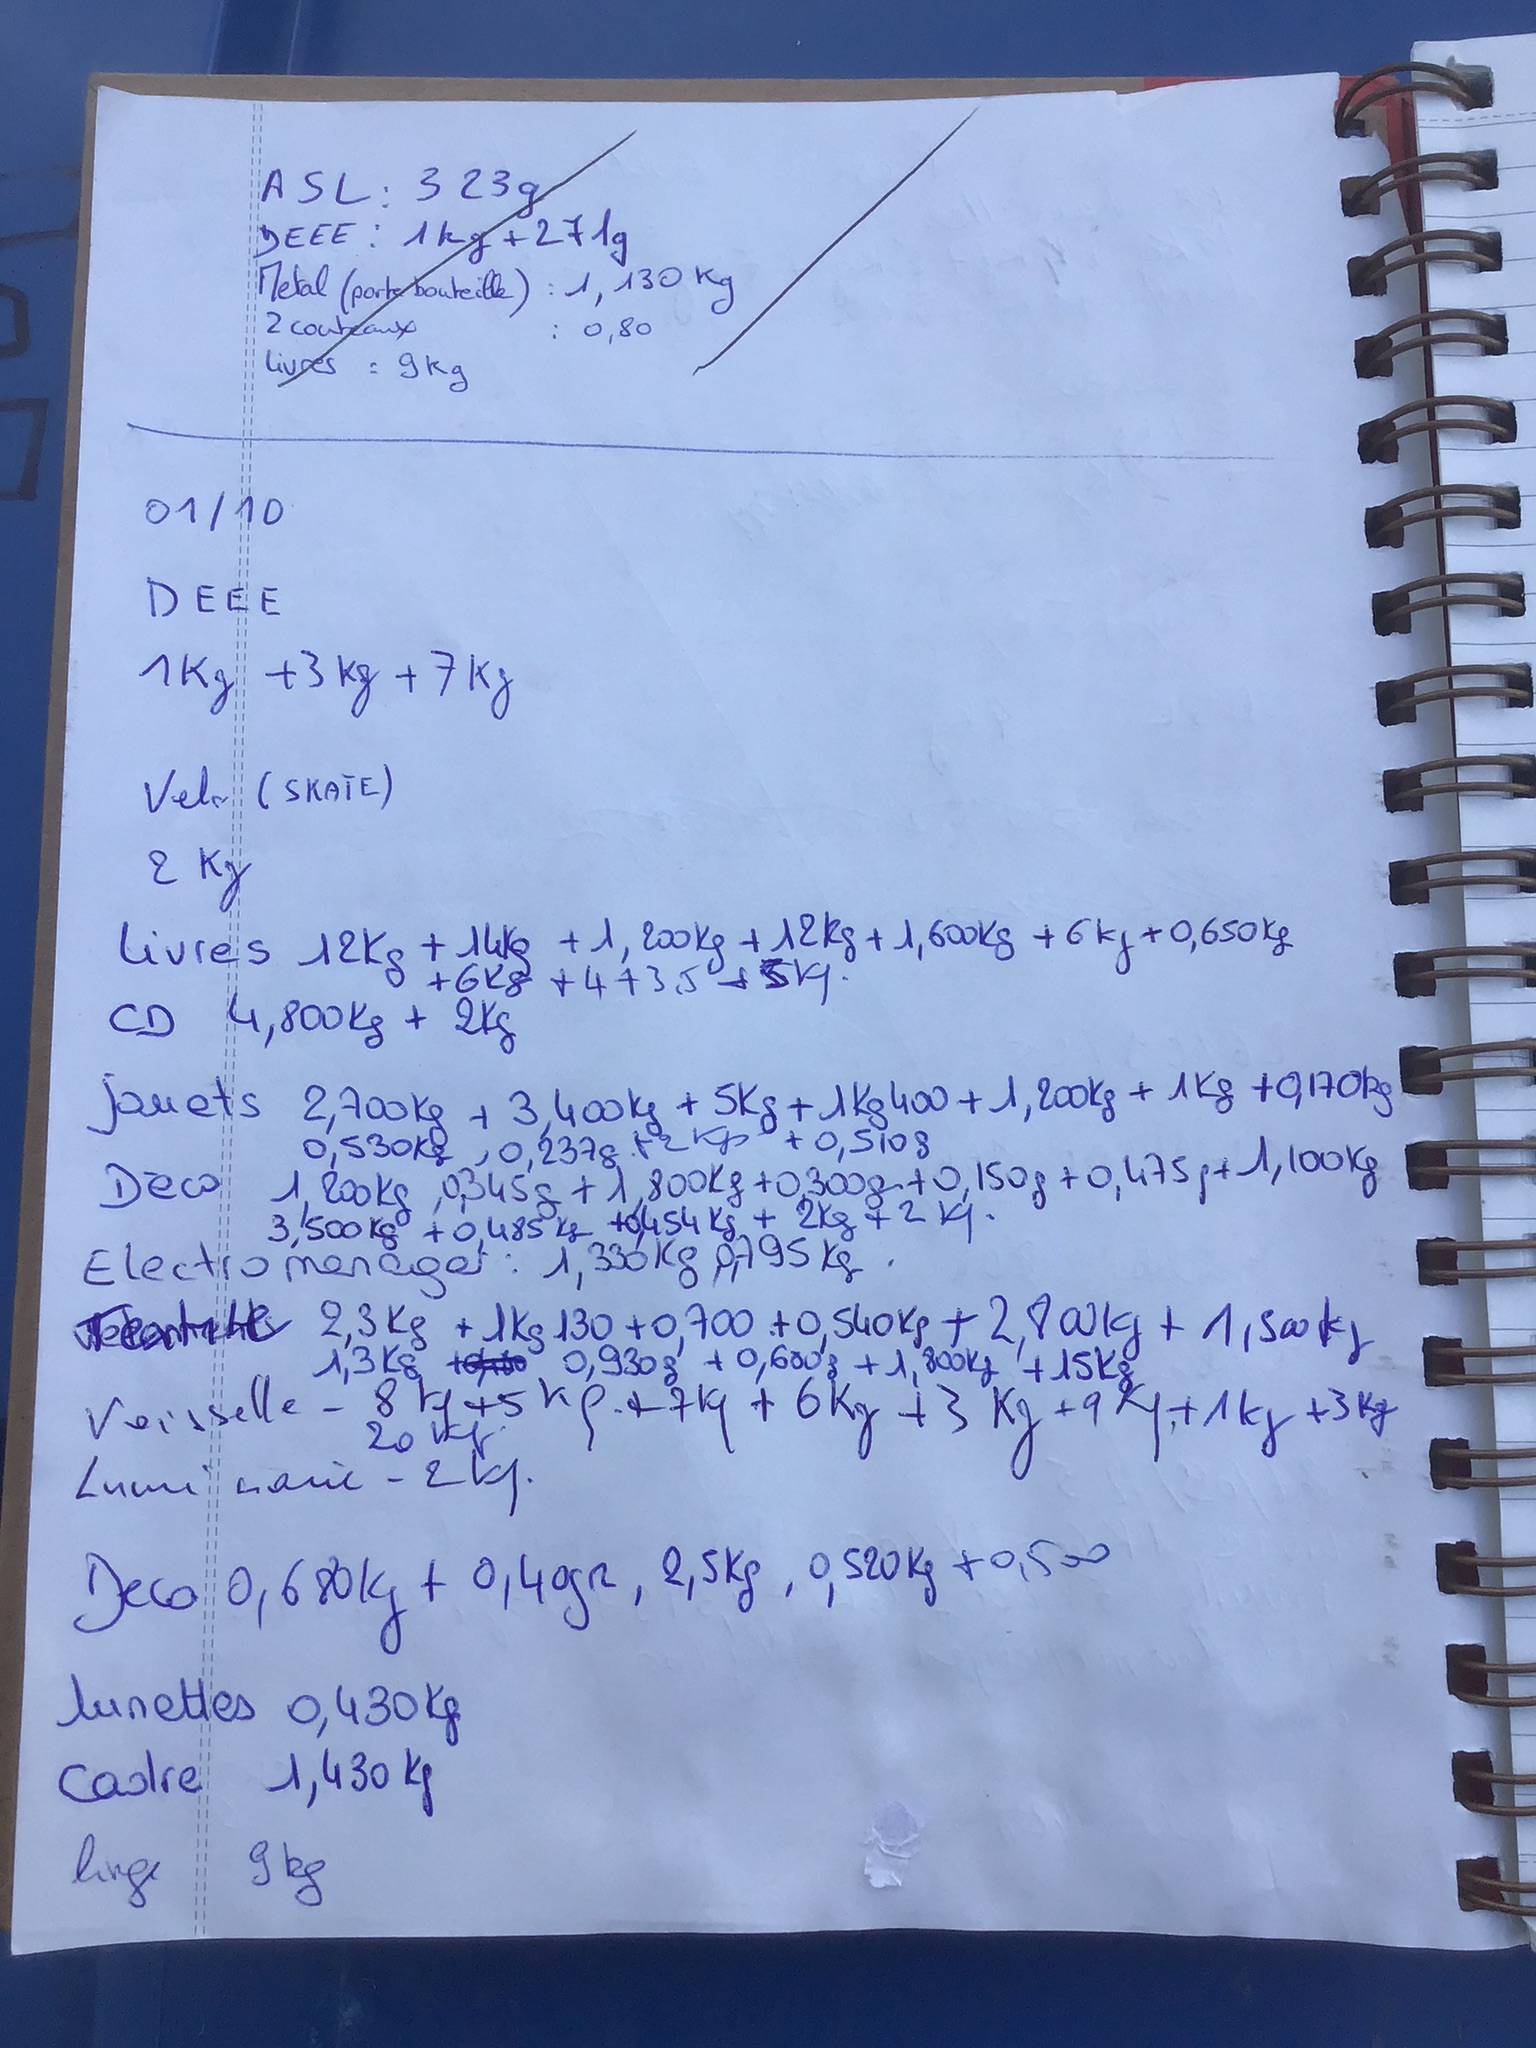 ASL : 323g
DEEE : 1kg + 271g
Metal (porte bouteille) : 1,130 Kg
2 couteaux : 0,80
Livres : 9Kg
01/10
DEEE
1Kg + 3kg + 7Kg
Velo (SKATE)
2 Kg
Livres 12Kg + 14Kg + 1,200Kg + 12Kg + 1,600Kg + 6kg + 0,650Kg
+ 6Kg + 4 + 3.5 + 5Kg.
CD 4,800Kg + 2Kg
jouets 2,700Kg + 3,400Kg + 5Kg + 1Kg400 + 1,200Kg + 1Kg + 0,170kg
0,530Kg, 0,237g + 2 Kg + 0,510g
Deco 1,200Kg, 0,345g + 1,800Kg + 0,300g + 0,150g + 0,475g + 1,100Kg
3,500Kg + 0,485Kg + 0,454Kg + 2Kg + 2 Kg.
Electromenager : 1,330Kg 0,795Kg.
2,3Kg + 1Kg130 + 0,700 + 0,540Kg + 2,800Kg + 1,500kg
1,3Kg 0,930g + 0,600g + 1,800Kg + 15Kg
Vaisselle - 8 Kg + 5 Kg. + 7Kg + 6Kg + 3 Kg + 9 Kg. + 1kg + 3Kg
20 Kg.
Luminaire - 2 Kg.
Deco 0,680Kg + 0,40gr, 2,5Kg, 0,520Kg + 0,500
lunettes 0,430Kg
Cadre 1,430Kg
linge 9kg